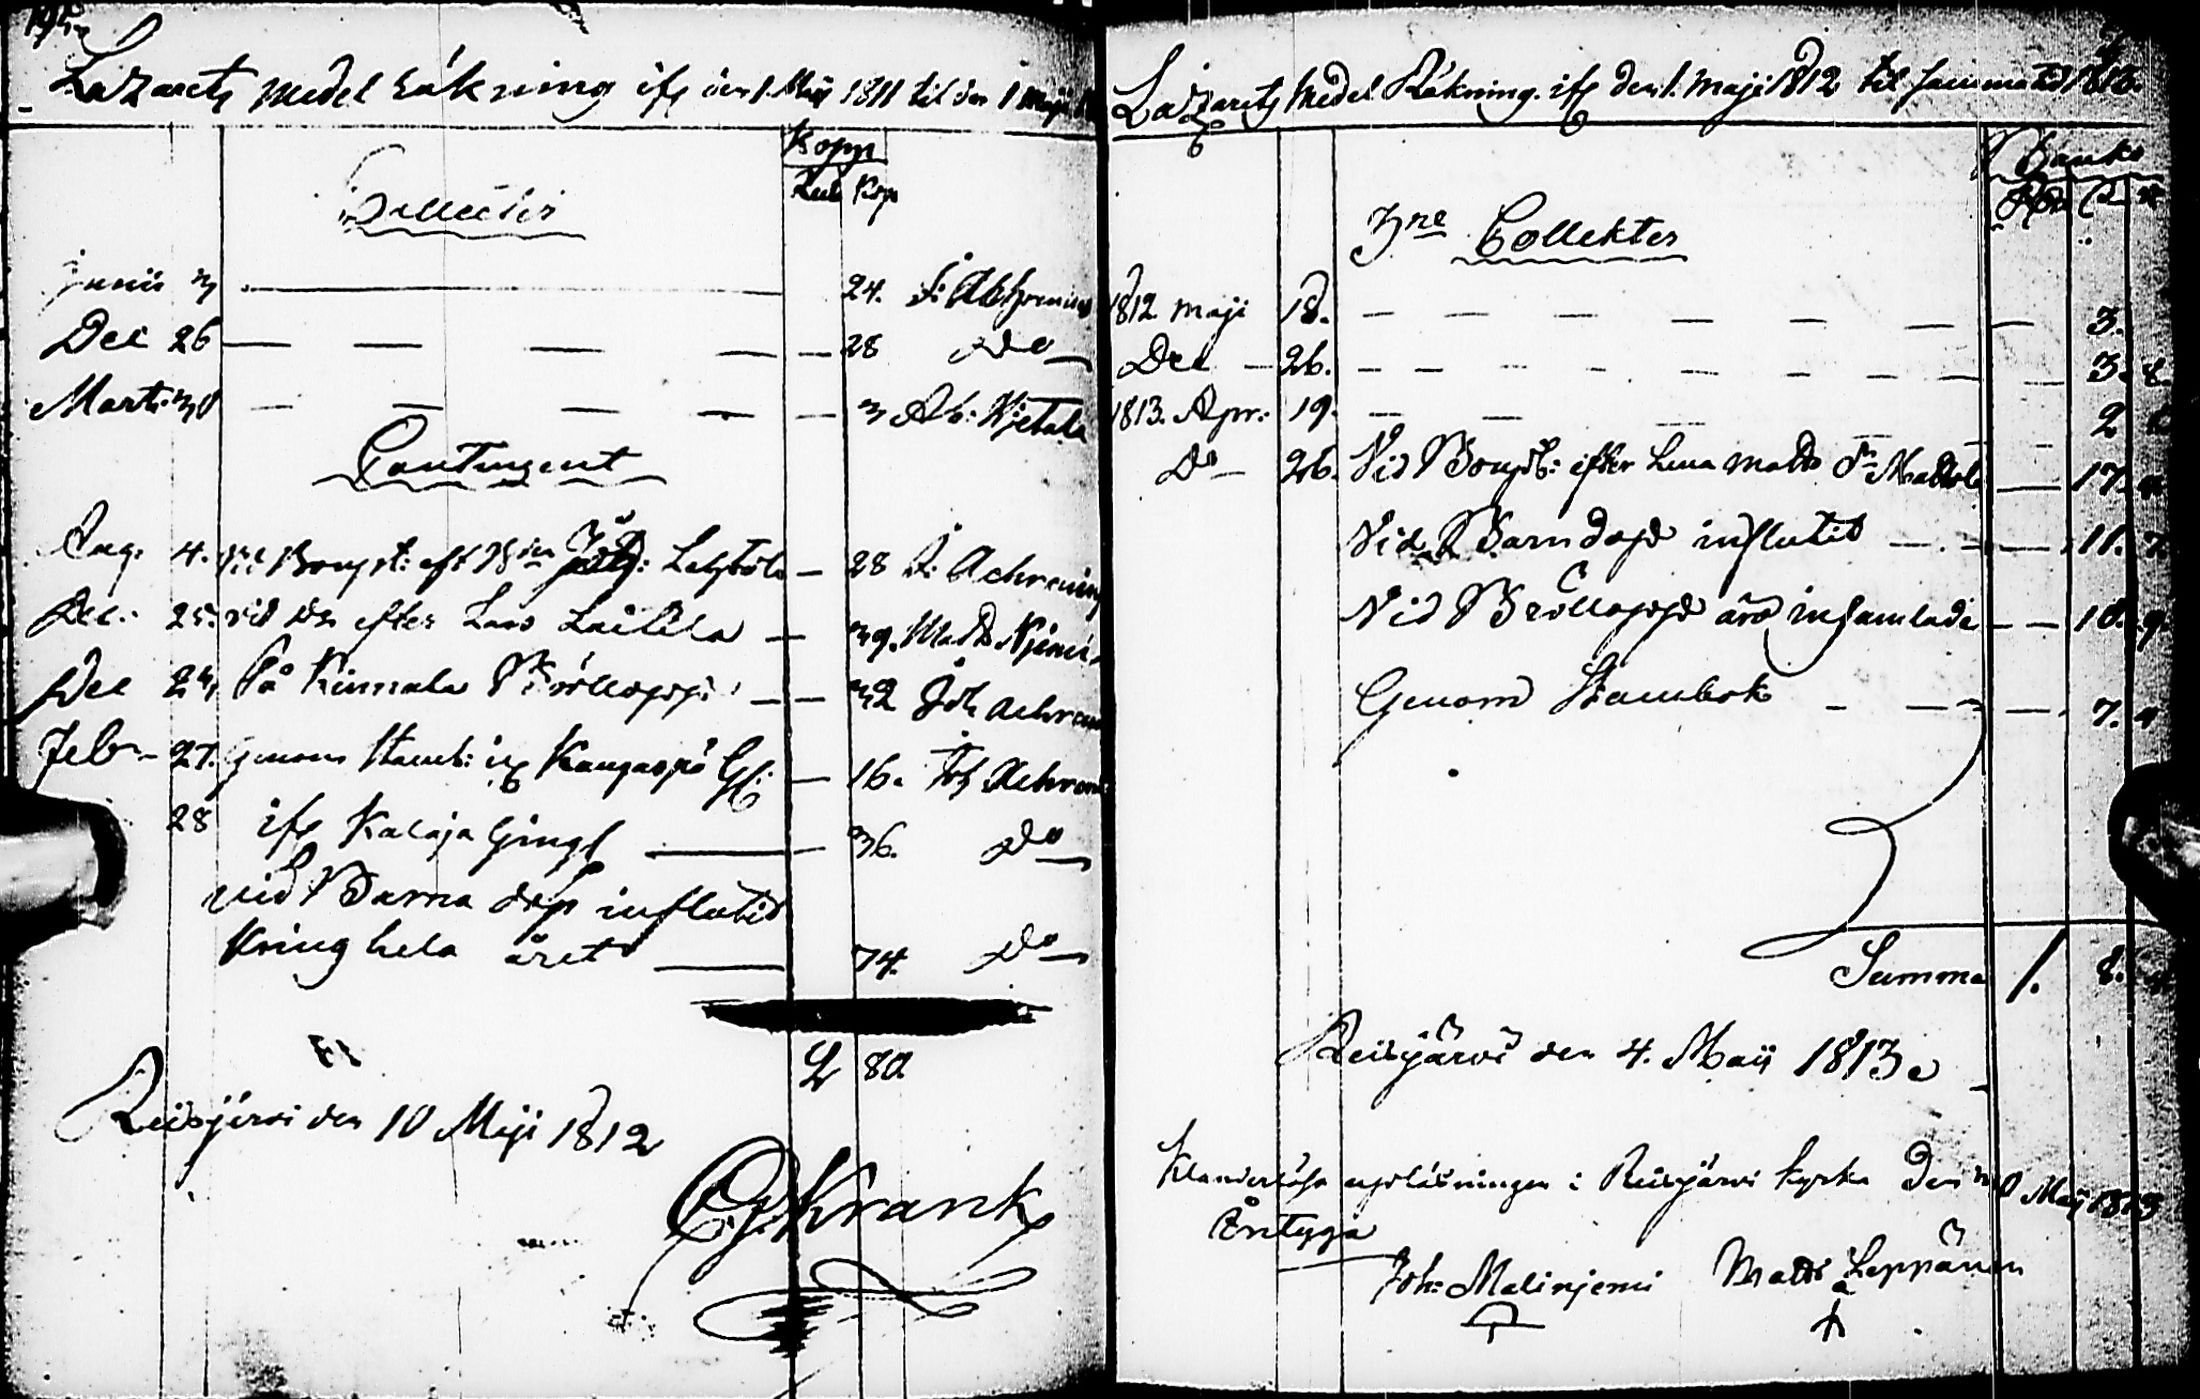 Lazarets Medel Räkning ifr den 1 Maij 1811 til den 1 Maji
Kopp
Rub Kop
Collecter
Junii 3 24. J: Achrenius
Dec 26 28 Do
Marti: 30 3 Ab: Kjetala
Contingent
Aug. 4. vid Begrt: eft Lehtola 28 J: Achrenius
Dec: 25. vid Do efter Lars Laitila 39. Matts Njemi
Dec 24 På Kinnala Bröllopp 32 Joh Achren
Febr 27. Genom Stamb: ifr Kangaspå Gl: 16. Joh Achren
28 ifr Kalaja Gingl 36. Do
vid Barna dop influtid
Kring hela året 74. Do
2 80
Reisjervi den 10 Maji 1812
Krank
Lazarets Medel Räkning ifr den 1. Maji 1812 til samma tid 1813.
Banko
3ne Collekter
1812 Maji 18. 3.
Dec 26. 3. 8.
1813. Apr: 19. 2
Do 26. Vid efter Lena Matts Dr 17.
Vid Barndop influtid 11. 7.
Vid Bröllopp äro insamlade 18. 9.
Genom Stambok 7. 4
Summa 1. 8.
Reisjärvi den 4. Maii 1813
Klanderlösa upläsningen i Reisjärvi kyrka den Maij 1813
Äntyga
Joh: Malinjemi Matts Leppänen